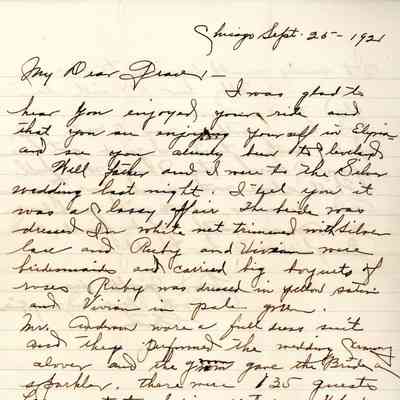 Chicago Sept. 25 - 1921
My Dear Grace: -
I was glad to
hear you enjoyed your ride and
that you are enjoying yourself in Elyria
and see you been to Cleveland
Well Father and I were to the Silver
wedding last night. I tell you it
was a classy affair The bride was
dressed in white net trimmed with Silver
lace and Ruby and Vivian were
bridesmaids and carried big boquets of
roses Ruby was dressed in yellow satin
and Vivian in pale green.
Mr. wore a full dress suit
and they performed the wedding
alover and the groom gave the Bride a
sparkler. there were 135 guests